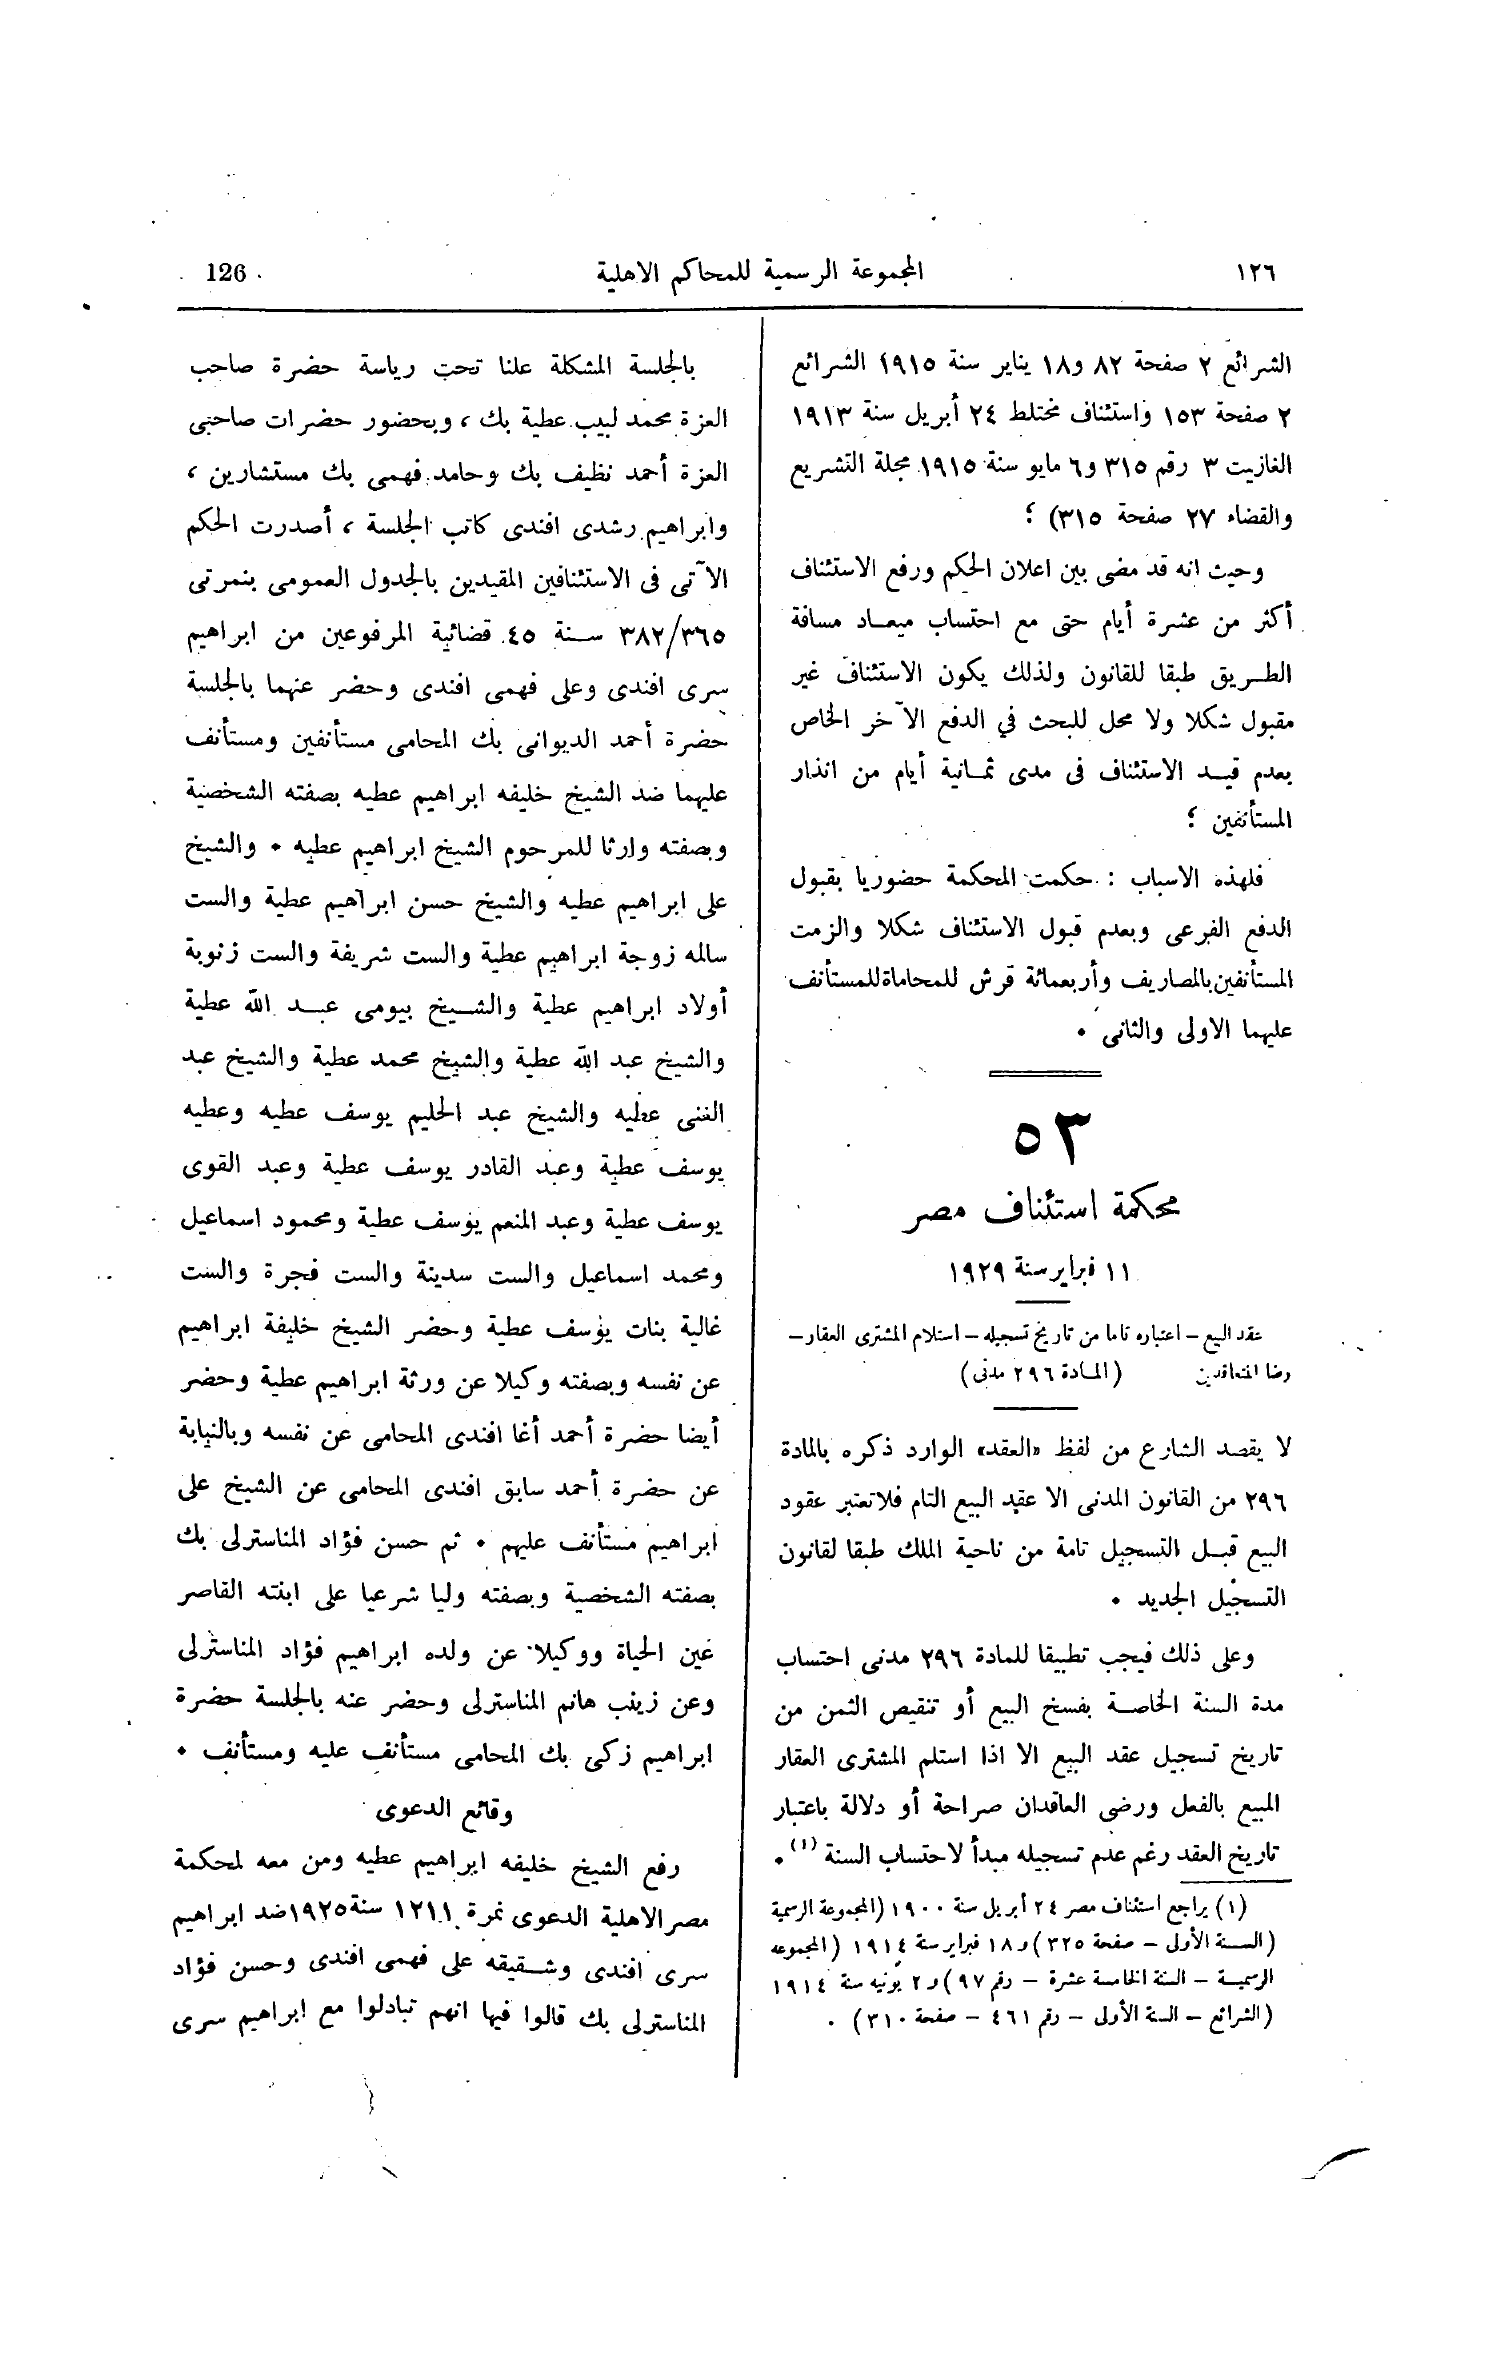 ١٢٦ المجموعة الرسمية للمحاكم الاهلية 126
الشرائع ٢ صفحة ٨٢ و١٨ يناير سنة ١٩١٥ الشرائع
٢ صفحة ١٥٣ واستئناف مختلط ٢٤ أبريل سنة ١٩١٣
الغازيت ٣ رقم ٣١٥ و٦ مايو سنة ١٩١٥ مجلة التشريع
والقضاء ٢٧ صفحة ٣١٥) ؛
وحيث انه قد مضى بين اعلان الحكم ورفع الاستئناف
أكثر من عشرة أيام حتى مع احتساب ميعاد مسافة
الطريق طبقا للقانون ولذلك يكون الاستئناف غير
مقبول شكلا ولا محل للبحث في الدفع الآخر الخاص
بعدم قيد الاستئناف فى مدى ثمانية أيام من انذار
المستأنفين ؛
فلهذه الاسباب : حكمت المحكمة حضوريا بقبول
الدفع الفرعى وبعدم قبول الاستئناف شكلا والزمت
المستأنفين بالمصاريف وأربعمائة قرش للمحاماة للمستأنف
عليهما الاولى والثانى .
٥٣
محكمة استئناف مصر
١١ فبراير سنة ١٩٢٩
عقد البيع – اعتباره تاما من تاريخ تسجيله – استلام المشترى العقار –
رضا المتعاقدين (المادة ٢٩٦ مدنى)
لا يقصد الشارع من لفظ «العقد» الوارد ذكره بالمادة
٢٩٦ من القانون المدنى الا عقد البيع التام فلا تعتبر عقود
البيع قبل التسجيل تامة من ناحية الملك طبقا لقانون
التسجيل الجديد .
وعلى ذلك فيجب تطبيقا للمادة ٢٩٦ مدنى احتساب
مدة السنة الخاصة بفسخ البيع أو تنقيص الثمن من
تاريخ تسجيل عقد البيع الا اذا استلم المشترى العقار
المبيع بالفعل ورضى العاقدان صراحة أو دلالة باعتبار
تاريخ العقد رغم عدم تسجيله مبدأ لاحتساب السنة (١) .
(١) يراجع استئناف مصر ٢٤ أبريل سنة ١٩٠٠ (المجموعة الرسمية
(السنة الأولى – صفحة ٣٢٥) و١٨ فبراير سنة ١٩١٤ (المجموعه
الرسمية – السنة الخامسة عشرة – رقم ٩٧) و٢ يونيه سنة ١٩١٤
(الشرائع – السنة الأولى – رقم ٤٦١ – صفحة ٣١٠) .
بالجلسة المشكلة علنا تحت رياسة حضرة صاحب
العزة محمد لبيب عطية بك ، وبحضور حضرات صاحبى
العزة أحمد نظيف بك وحامد فهمى بك مستشارين ،
وابراهيم رشدى افندى كاتب الجلسة ، أصدرت الحكم
الآتى فى الاستئنافين المقيدين بالجدول العمومى بنمرتى
٣٨٢/٣٦٥ سنة ٤٥ قضائية المرفوعين من ابراهيم
سرى افندى وعلى فهمى افندى وحضر عنهما بالجلسة
حضرة أحمد الديوانى بك المحامى مستأنفين ومستأنف
عليهما ضد الشيخ خليفه ابراهيم عطيه بصفته الشخصية
وبصفته وارثا للمرحوم الشيخ ابراهيم عطيه . والشيخ
على ابراهيم عطيه والشيخ حسن ابراهيم عطية والست
سالمه زوجة ابراهيم عطية والست شريفة والست زنوبة
أولاد ابراهيم عطية والشيخ بيومى عبد الله عطية
والشيخ عبد الله عطية والشيخ محمد عطية والشيخ عبد
الغنى عطيه والشيخ عبد الحليم يوسف عطيه وعطيه
يوسف عطية وعبد القادر يوسف عطية وعبد القوى
يوسف عطية وعبد المنعم يوسف عطية ومحمود اسماعيل
ومحمد اسماعيل والست سدينة والست فجرة والست
غالية بنات يوسف عطية وحضر الشيخ خليفة ابراهيم
عن نفسه وبصفته وكيلا عن ورثة ابراهيم عطية وحضر
أيضا حضرة أحمد أغا افندى المحامى عن نفسه وبالنيابة
عن حضرة أحمد سابق افندى المحامى عن الشيخ على
ابراهيم مستأنف عليهم . ثم حسن فؤاد المناسترلى بك
بصفته الشخصية وبصفته وليا شرعيا على ابنته القاصر
عين الحياة ووكيلا عن ولده ابراهيم فؤاد المناسترلى
وعن زينب هانم المناسترلى وحضر عنه بالجلسة حضرة
ابراهيم زكى بك المحامى مستأنف عليه ومستأنف .
وقائع الدعوى
رفع الشيخ خليفه ابراهيم عطيه ومن معه لمحكمة
مصر الاهلية الدعوى نمرة ١٢١١ سنة ١٩٢٥ ضد ابراهيم
سرى افندى وشقيقه على فهمى افندى وحسن فؤاد
المناسترلى بك قالوا فيها انهم تبادلوا مع ابراهيم سرى